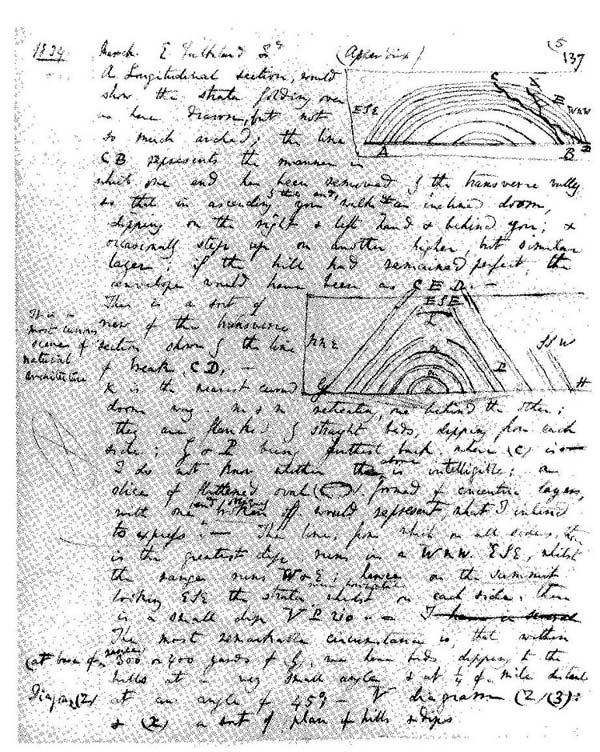 1834 March. E Falkland Id (Appendix) (5
137
A Longitudinal section, would
show the strata folding over
as here drawn, but not
so much arched; the line
CB represents the manner in
which one end has been removed by the transverse valley
so that in ascending you walk an inclined doom,
dipping on the right & left hand & behind you; &
occasionally step up on another higher but similar
layer; if the hill had remained perfect, the
envelope would have been as C E D. —
This is a sort of
view of the transverse
section shown by the line
of break CD, —
K is the nearest curved
door way. m & n retreating one behind the other;
they are flanked by straight beds, dipping from each
side; G & P being furthest back, where (C) is
I do not know whether this is intelligible; a
slice of flattened oval formed of concentric layers,
with one end off would represent, what I intend
to express. — The line, from which on all sides, there
is the greatest dip runs in a WNW. ESE, whilst
the range runs W & E; hence on the summit
looking ESE the strata whilst on each side, there
is a small dip V P 210. — I have in several
The most remarkable circumstance is, that within
300 or 400 yards of G, we have beds dipping to the
hills at a very small angle & at ¼ of mile distant
at an angle of 45° — V diagram (2) (3):
& (2) a sort of plan of hills & dips
This is a
most curious
scene of
natural
architecture
(at base of
Diagram (2)
ESE
C
E
WNW
A
B
D
NNE
ESE
SSW
G
P
H